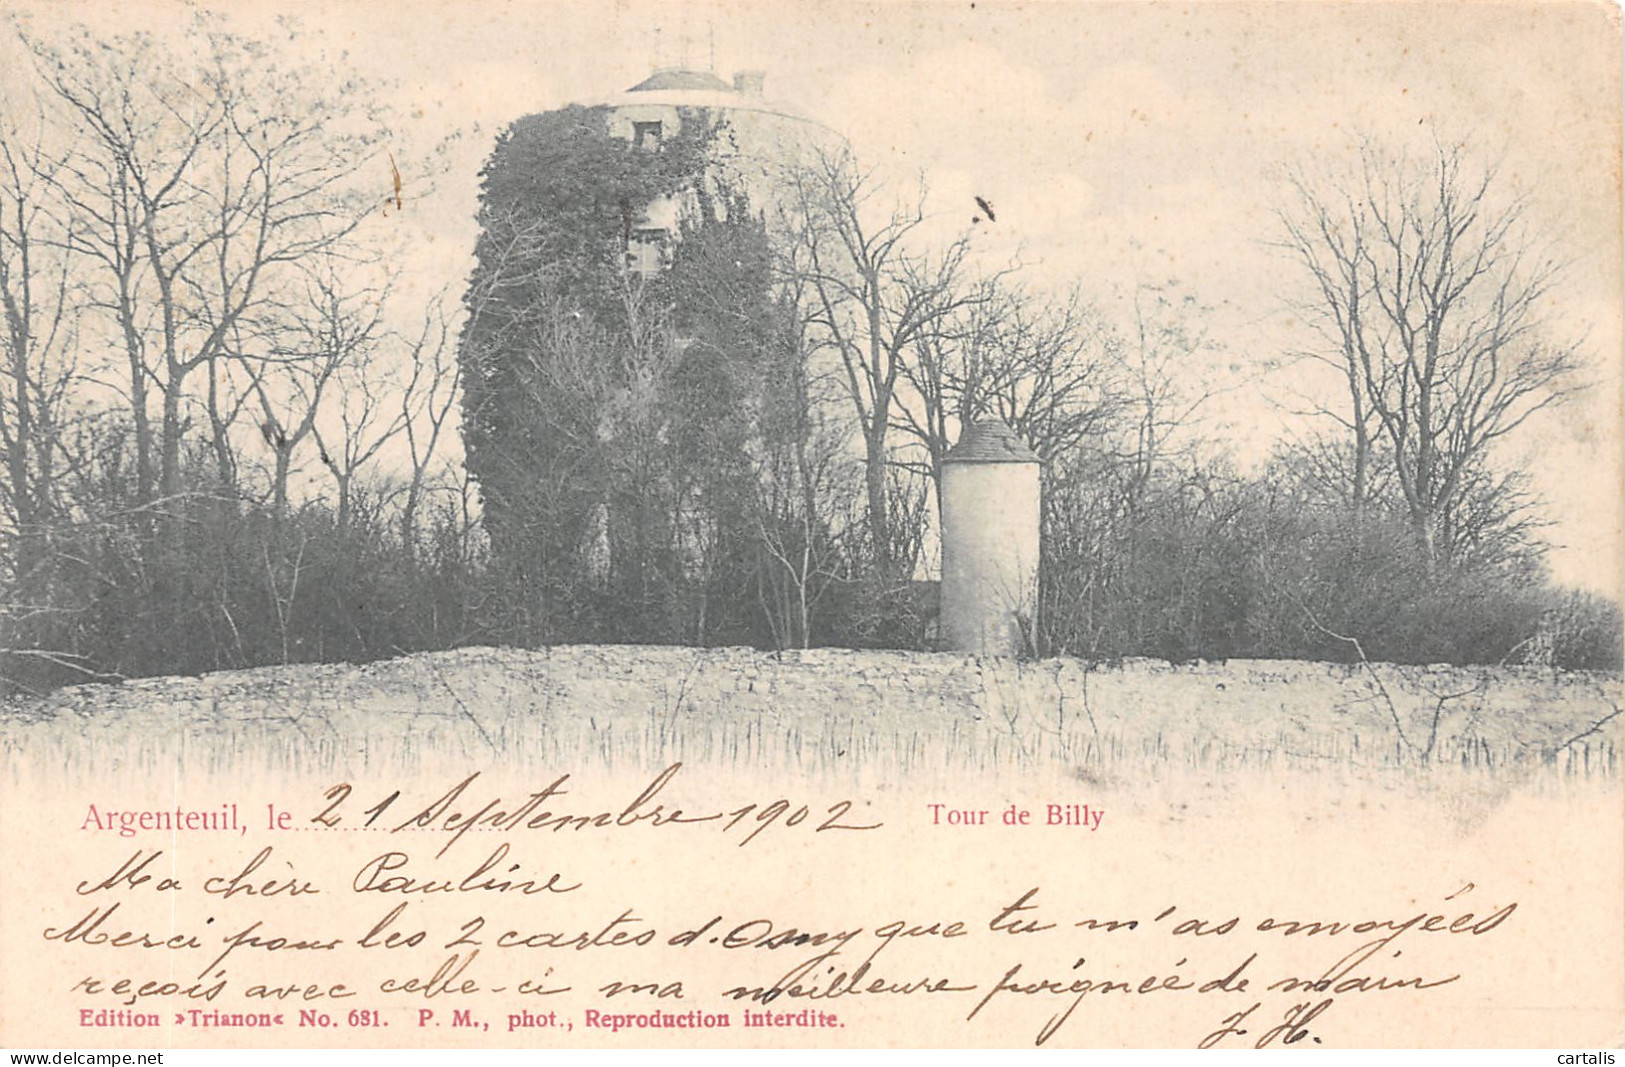 Argenteuil, le 21 Septembre 1902 Tour de Billy
Ma chère Pauline
Merci pour les 2 cartes d'Osny que tu m'as envoyées
reçois avec celle-ci ma meilleure poignée de main
J. H.
Edition »Trianon« No. 681. P. M., phot., Reproduction interdite.
delcampe.net
cartalis